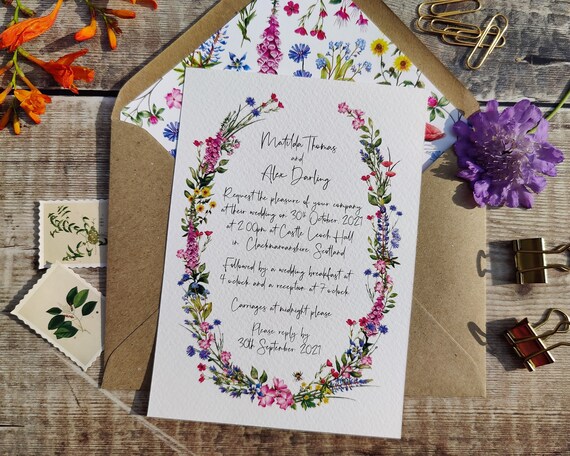 Matilda Thomas
and
Alex Darling
Request the pleasure of your company
at their wedding on 30th October 2021
at 2.00pm at Castle Leoch Hall
in
Clackmannanshire Scotland
Followed by a wedding breakfast at
4 o'clock and a reception at 7 o'clock
Carriages at midnight please
Please reply by
30th September 2021